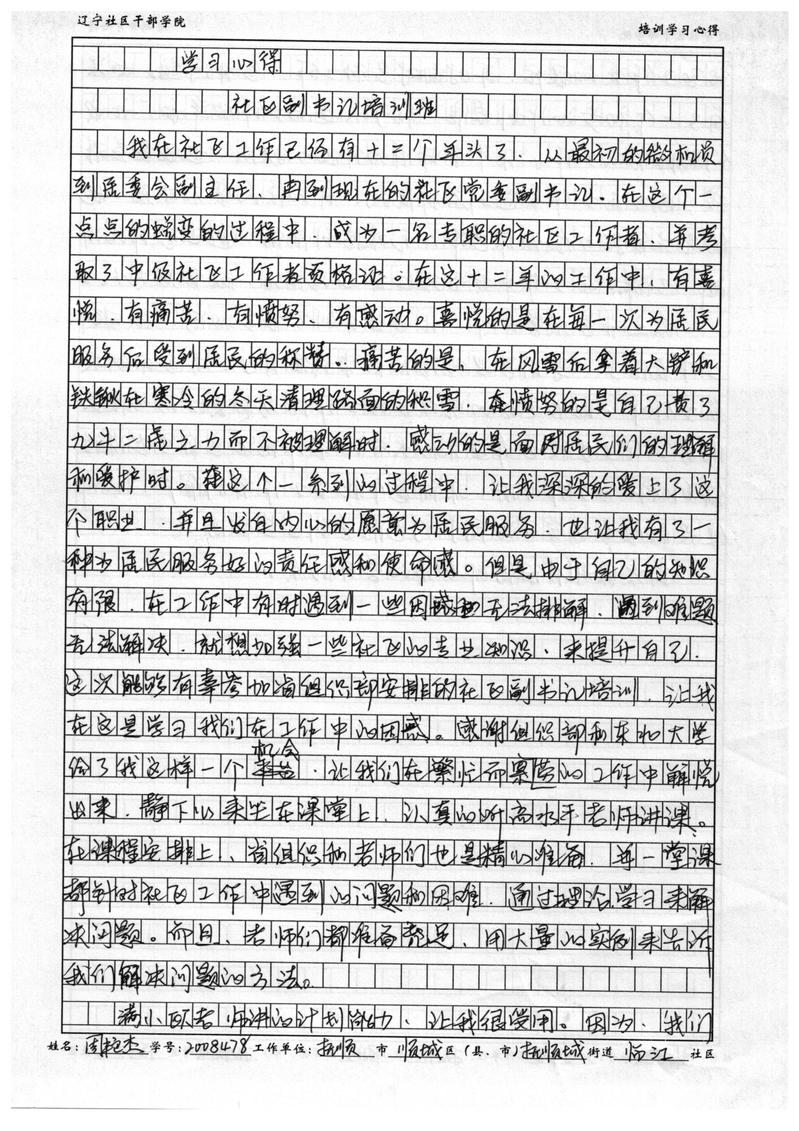 辽宁社区干部学院 培训学习心得
学习心得
社区副书记培训班
我在社区工作已经有十二个年头了.从最初的微机员
到居委会副主任、再到现在的社区党委副书记.在这个一
点点的蜕变的过程中.成为一名专职的社区工作者、并考
取了中级社区工作者资格证。在这十二年的工作中、有喜
悦.有痛苦.有愤努、有感动。喜悦的是在每一次为居民
服务后受到居民的称赞。痛苦的是、在风雪后拿着大铲和
铁锹在寒冷的冬天清理路面的积雪.愤努的是自己费了
九牛二虎之力而不被理解时.感动的是面对居民们的理解
和爱护时。在这个一系列的过程中.让我深深的爱上了这
个职业.并且发自内心的愿意为居民服务.也让我有了一
种为居民服务好的责任感和使命感。但是由于自己的知识
有限.在工作中有时遇到一些困惑无法排解.遇到难题
无法解决.就想加强一些社区的专业知识.来提升自己.
这次能够有幸参加省组织部安排的社区副书记培训.让我
在这里学习我们在工作中的困惑。感谢组织部和东北大学
给了我这样一个机会.让我们在繁忙而的工作中解脱
出来.静下心来坐在课堂上、认真的听高水平老师讲课。
在课程安排上、省组织和老师们也是精心准备.每一堂课
都针对社区工作中遇到的问题和困难.通过理论学习来解
决问题。而且、老师们都准备充足、用大量的实例来告诉
我们解决问题的方法。
满小欧老师讲的计划能力、让我很受用。因为、我们
姓名：周艳杰 学号：2008478 工作单位：抚顺 市 顺城 区（县、市）抚顺城 街道 临江 社区